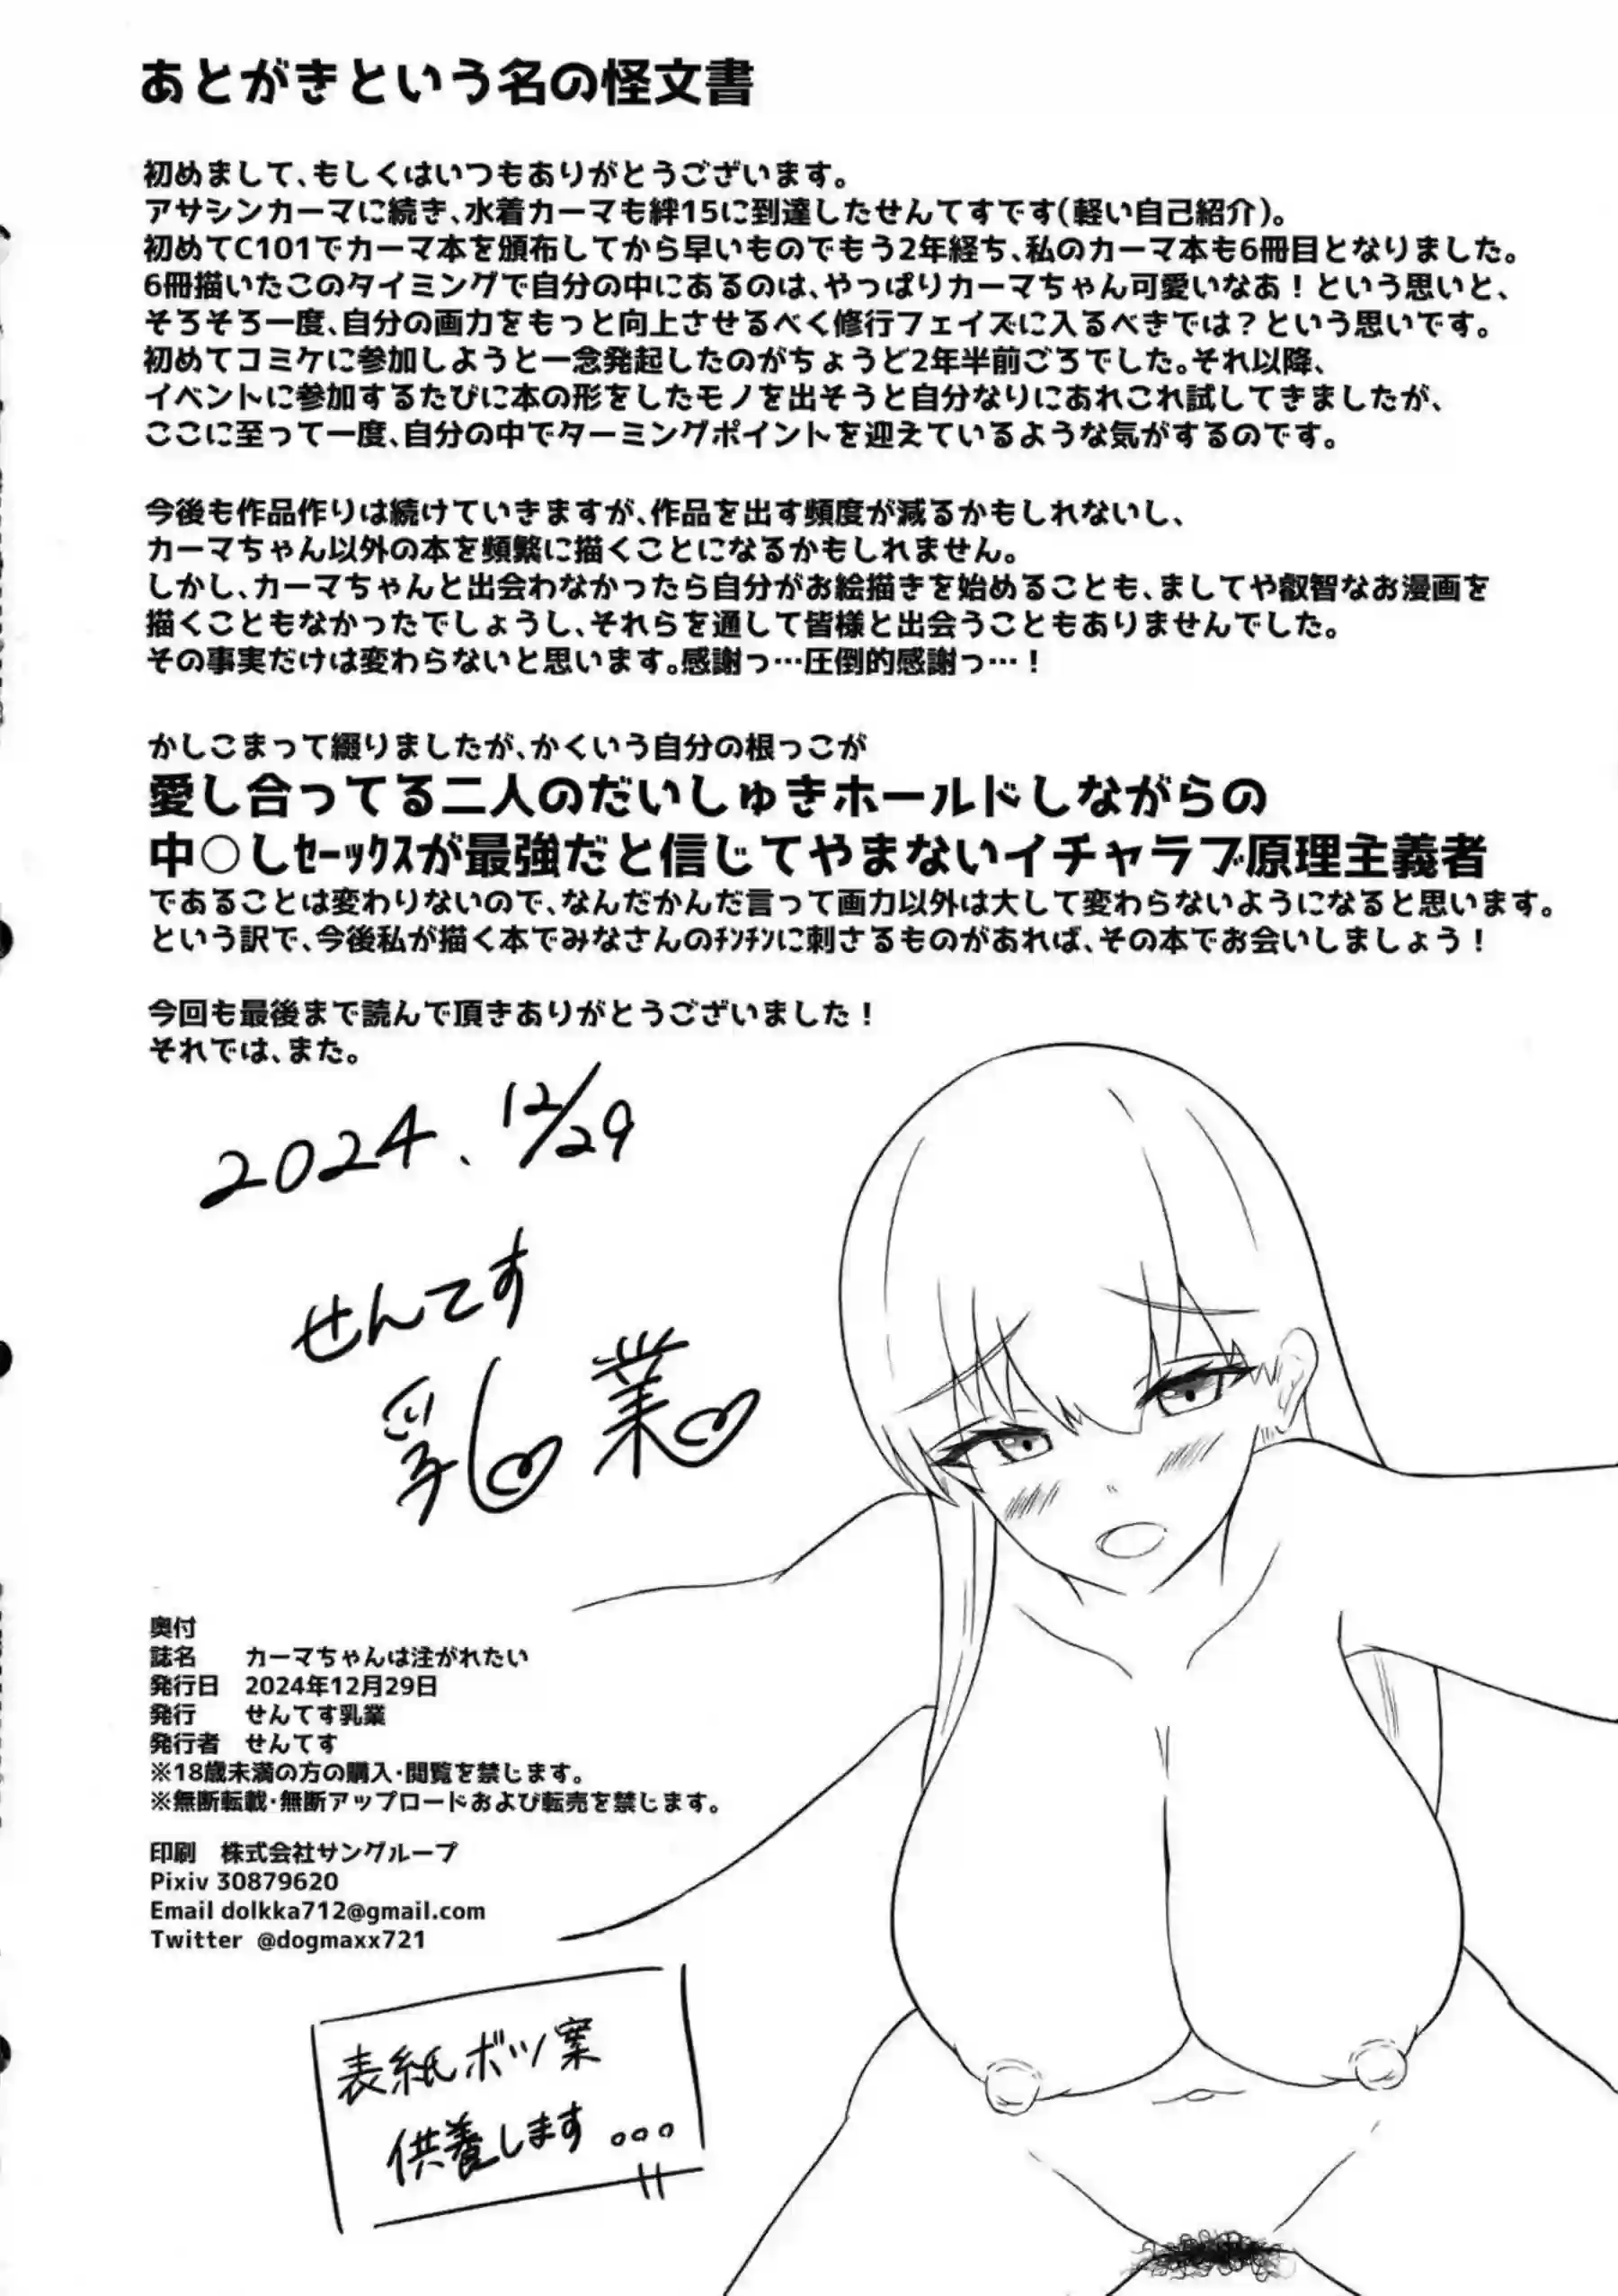 あとがきという名の怪文書
初めまして、もしくはいつもありがとうございます。
アサシンカーマに続き、水着カーマも絆15に到達したせんてすです(軽い自己紹介)。
初めてC101でカーマ本を頒布してから早いものでもう2年経ち、私のカーマ本も6冊目となりました。
6冊描いたこのタイミングで自分の中にあるのは、やっぱりカーマちゃん可愛いなあ！という思いと、
そろそろ一度、自分の画力をもっと向上させるべく修行フェイズに入るべきでは？という思いです。
初めてコミケに参加しようと一念発起したのがちょうど2年半前ごろでした。それ以降、
イベントに参加するたびに本の形をしたモノを出そうと自分なりにあれこれ試してきましたが、
ここに至って一度、自分の中でターミングポイントを迎えているような気がするのです。
今後も作品作りは続けていきますが、作品を出す頻度が減るかもしれないし、
カーマちゃん以外の本を頻繁に描くことになるかもしれません。
しかし、カーマちゃんと出会わなかったら自分がお絵描きを始めることも、ましてや叡智なお漫画を
描くこともなかったでしょうし、それらを通して皆様と出会うこともありませんでした。
その事実だけは変わらないと思います。感謝っ…圧倒的感謝っ…！
かしこまって綴りましたが、かくいう自分の根っこが
愛し合ってる二人のだいしゅきホールドしながらの
中○しｾｰｯｸｽが最強だと信じてやまないイチャラブ原理主義者
であることは変わりないので、なんだかんだ言って画力以外は大して変わらないようになると思います。
という訳で、今後私が描く本でみなさんのﾁﾝﾁﾝに刺さるものがあれば、その本でお会いしましょう！
今回も最後まで読んで頂きありがとうございました！
それでは、また。
2024、12/29
せんてす
乳業
奥付
誌名 カーマちゃんは注がれたい
発行日 2024年12月29日
発行 せんてす乳業
発行者 せんてす
※18歳未満の方の購入・閲覧を禁じます。
※無断転載・無断アップロードおよび転売を禁じます。
印刷 株式会社サングループ
Pixiv 30879620
Email dolkka712@gmail.com
Twitter @dogmaxx721
表紙ボツ案
供養します...